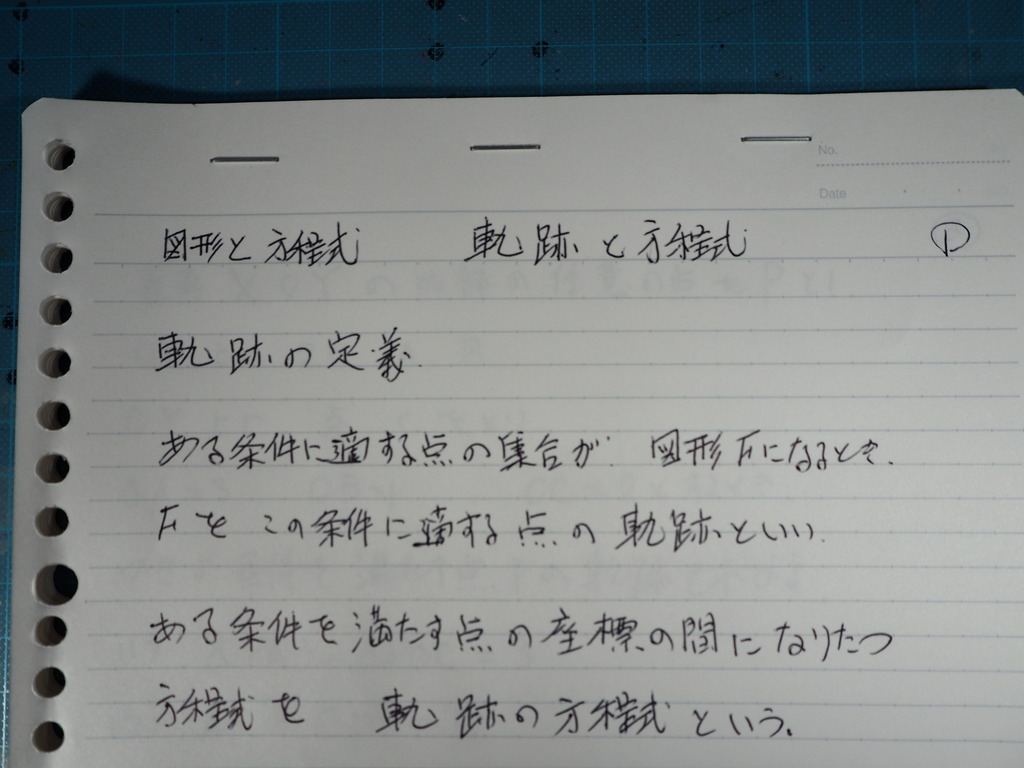 No.
Date
図形と方程式 軌跡と方程式 ①
軌跡の定義.
ある条件に適する点の集合が. 図形Fになるとき.
Fを この条件に適する点の軌跡といい.
ある条件を満たす点の座標の間になりたつ
方程式を 軌跡の方程式という.